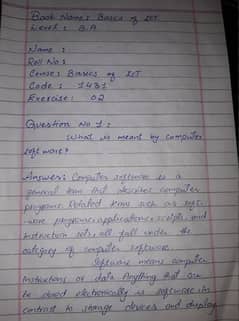 Book Name: Basics of ICT
Level : B.A
Name :
Roll No :
Course: Basics of ICT
Code : 1431
Exercise: 02
Question No 1 :
What is meant by computer
software?
Answer: Computer software is a
general term that describes computer
programs. Related terms such as soft-
ware programs, applications, scripts, and
instruction sets all fall under the
category of computer software.
Software means computer
instructions or data. Anything that can
be stored electronically is software, in
contrast to storage devices and display